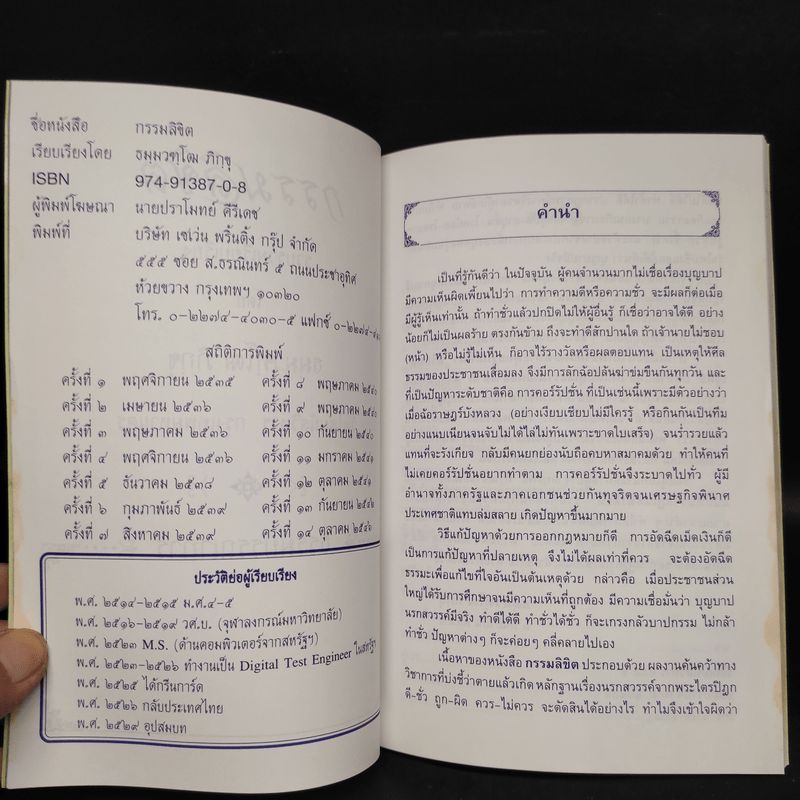 ชื่อหนังสือ กรรมลิขิต
เรียบเรียงโดย ธมฺมวฑฺโฒ ภิกฺขุ
ISBN 974-91387-0-8
ผู้พิมพ์โฆษณา นายปราโมทย์ คีรีเดช
พิมพ์ที่ บริษัท เซเว่น พริ้นติ้ง กรุ๊ป จำกัด
๕๕๕ ซอย ส.ธรณินทร์ ๕ ถนนประชาอุทิศ
ห้วยขวาง กรุงเทพฯ ๑๐๓๒๐
โทร. ๐-๒๒๗๔-๔๐๓๐-๕ แฟกซ์
สถิติการพิมพ์
ครั้งที่ ๑ พฤศจิกายน ๒๕๓๕ ครั้งที่ ๘ พฤษภาคม
ครั้งที่ ๒ เมษายน ๒๕๓๖ ครั้งที่ ๙ พฤษภาคม
ครั้งที่ ๓ พฤษภาคม ๒๕๓๖ ครั้งที่ ๑๐ กันยายน
ครั้งที่ ๔ พฤศจิกายน ๒๕๓๖ ครั้งที่ ๑๑ มกราคม ๒๕๔๑
ครั้งที่ ๕ ธันวาคม ๒๕๓๘ ครั้งที่ ๑๒ ตุลาคม
ครั้งที่ ๖ กุมภาพันธ์ ๒๕๓๙ ครั้งที่ ๑๓ กันยายน
ครั้งที่ ๗ สิงหาคม ๒๕๓๙ ครั้งที่ ๑๔ ตุลาคม
ประวัติย่อผู้เรียบเรียง
พ.ศ. ๒๕๑๔-๒๕๑๕ ม.ศ.๔-๕
พ.ศ. ๒๕๑๖-๒๕๑๙ วศ.บ. (จุฬาลงกรณ์มหาวิทยาลัย)
พ.ศ. ๒๕๒๓ M.S. (ด้านคอมพิวเตอร์จากสหรัฐฯ)
พ.ศ. ๒๕๒๓-๒๕๒๖ ทำงานเป็น Digital Test Engineer ในสหรัฐฯ
พ.ศ. ๒๕๒๕ ได้กรีนการ์ด
พ.ศ. ๒๕๒๖ กลับประเทศไทย
พ.ศ. ๒๕๒๙ อุปสมบท
คำนำ
เป็นที่รู้กันดีว่า ในปัจจุบัน ผู้คนจำนวนมากไม่เชื่อเรื่องบุญบาป
มีความเห็นผิดเพี้ยนไปว่า การทำความดีหรือความชั่ว จะมีผลก็ต่อเมื่อ
มีผู้รู้เห็นเท่านั้น ถ้าทำชั่วแล้วปกปิดไม่ให้ผู้อื่นรู้ ก็เชื่อว่าอาจได้ดี อย่าง
น้อยก็ไม่เป็นผลร้าย ตรงกันข้าม ถึงจะทำดีสักปานใด ถ้าเจ้านายไม่ชอบ
(หน้า) หรือไม่รู้ไม่เห็น ก็อาจไร้รางวัลหรือผลตอบแทน เป็นเหตุให้ศีล
ธรรมของประชาชนเสื่อมลง จึงมีการลักฉ้อปล้นฆ่าข่มขืนกันทุกวัน และ
ที่เป็นปัญหาระดับชาติคือ การคอร์รัปชั่น ที่เป็นเช่นนี้เพราะมีตัวอย่างว่า
เมื่อฉ้อราษฎร์บังหลวง (อย่างเงียบเชียบไม่มีใครรู้ หรือกินกันเป็นทีม
อย่างแนบเนียนจนจับไม่ได้ไล่ไม่ทันเพราะขาดใบเสร็จ) จนร่ำรวยแล้ว
แทนที่จะรังเกียจ กลับมีคนยกย่องนับถือคบหาสมาคมด้วย ทำให้คนที่
ไม่เคยคอร์รัปชั่นอยากทำตาม การคอร์รัปชั่นจึงระบาดไปทั่ว ผู้มี
อำนาจทั้งภาครัฐและภาคเอกชนช่วยกันทุจริตจนเศรษฐกิจพินาศ
ประเทศชาติแทบล่มสลาย เกิดปัญหาขึ้นมากมาย
วิธีแก้ปัญหาด้วยการออกกฎหมายก็ดี การอัดฉีดเม็ดเงินก็ดี
เป็นการแก้ปัญหาที่ปลายเหตุ จึงไม่ได้ผลเท่าที่ควร จะต้องอัดฉีด
ธรรมะเพื่อแก้ไขที่ใจอันเป็นต้นเหตุด้วย กล่าวคือ เมื่อประชาชนส่วน
ใหญ่ได้รับการศึกษาจนมีความเห็นที่ถูกต้อง มีความเชื่อมั่นว่า บุญบาป
นรกสวรรค์มีจริง ทำดีได้ดี ทำชั่วได้ชั่ว ก็จะเกรงกลัวบาปกรรม ไม่กล้า
ทำชั่ว ปัญหาต่างๆ ก็จะค่อยๆ คลี่คลายไปเอง
เนื้อหาของหนังสือ กรรมลิขิต ประกอบด้วย ผลงานค้นคว้าทาง
วิชาการที่บ่งชี้ว่าตายแล้วเกิด หลักฐานเรื่องนรกสวรรค์จากพระไตรปิฎก
ดี-ชั่ว ถูก-ผิด ควร-ไม่ควร จะตัดสินได้อย่างไร ทำไมจึงเข้าใจผิดว่า